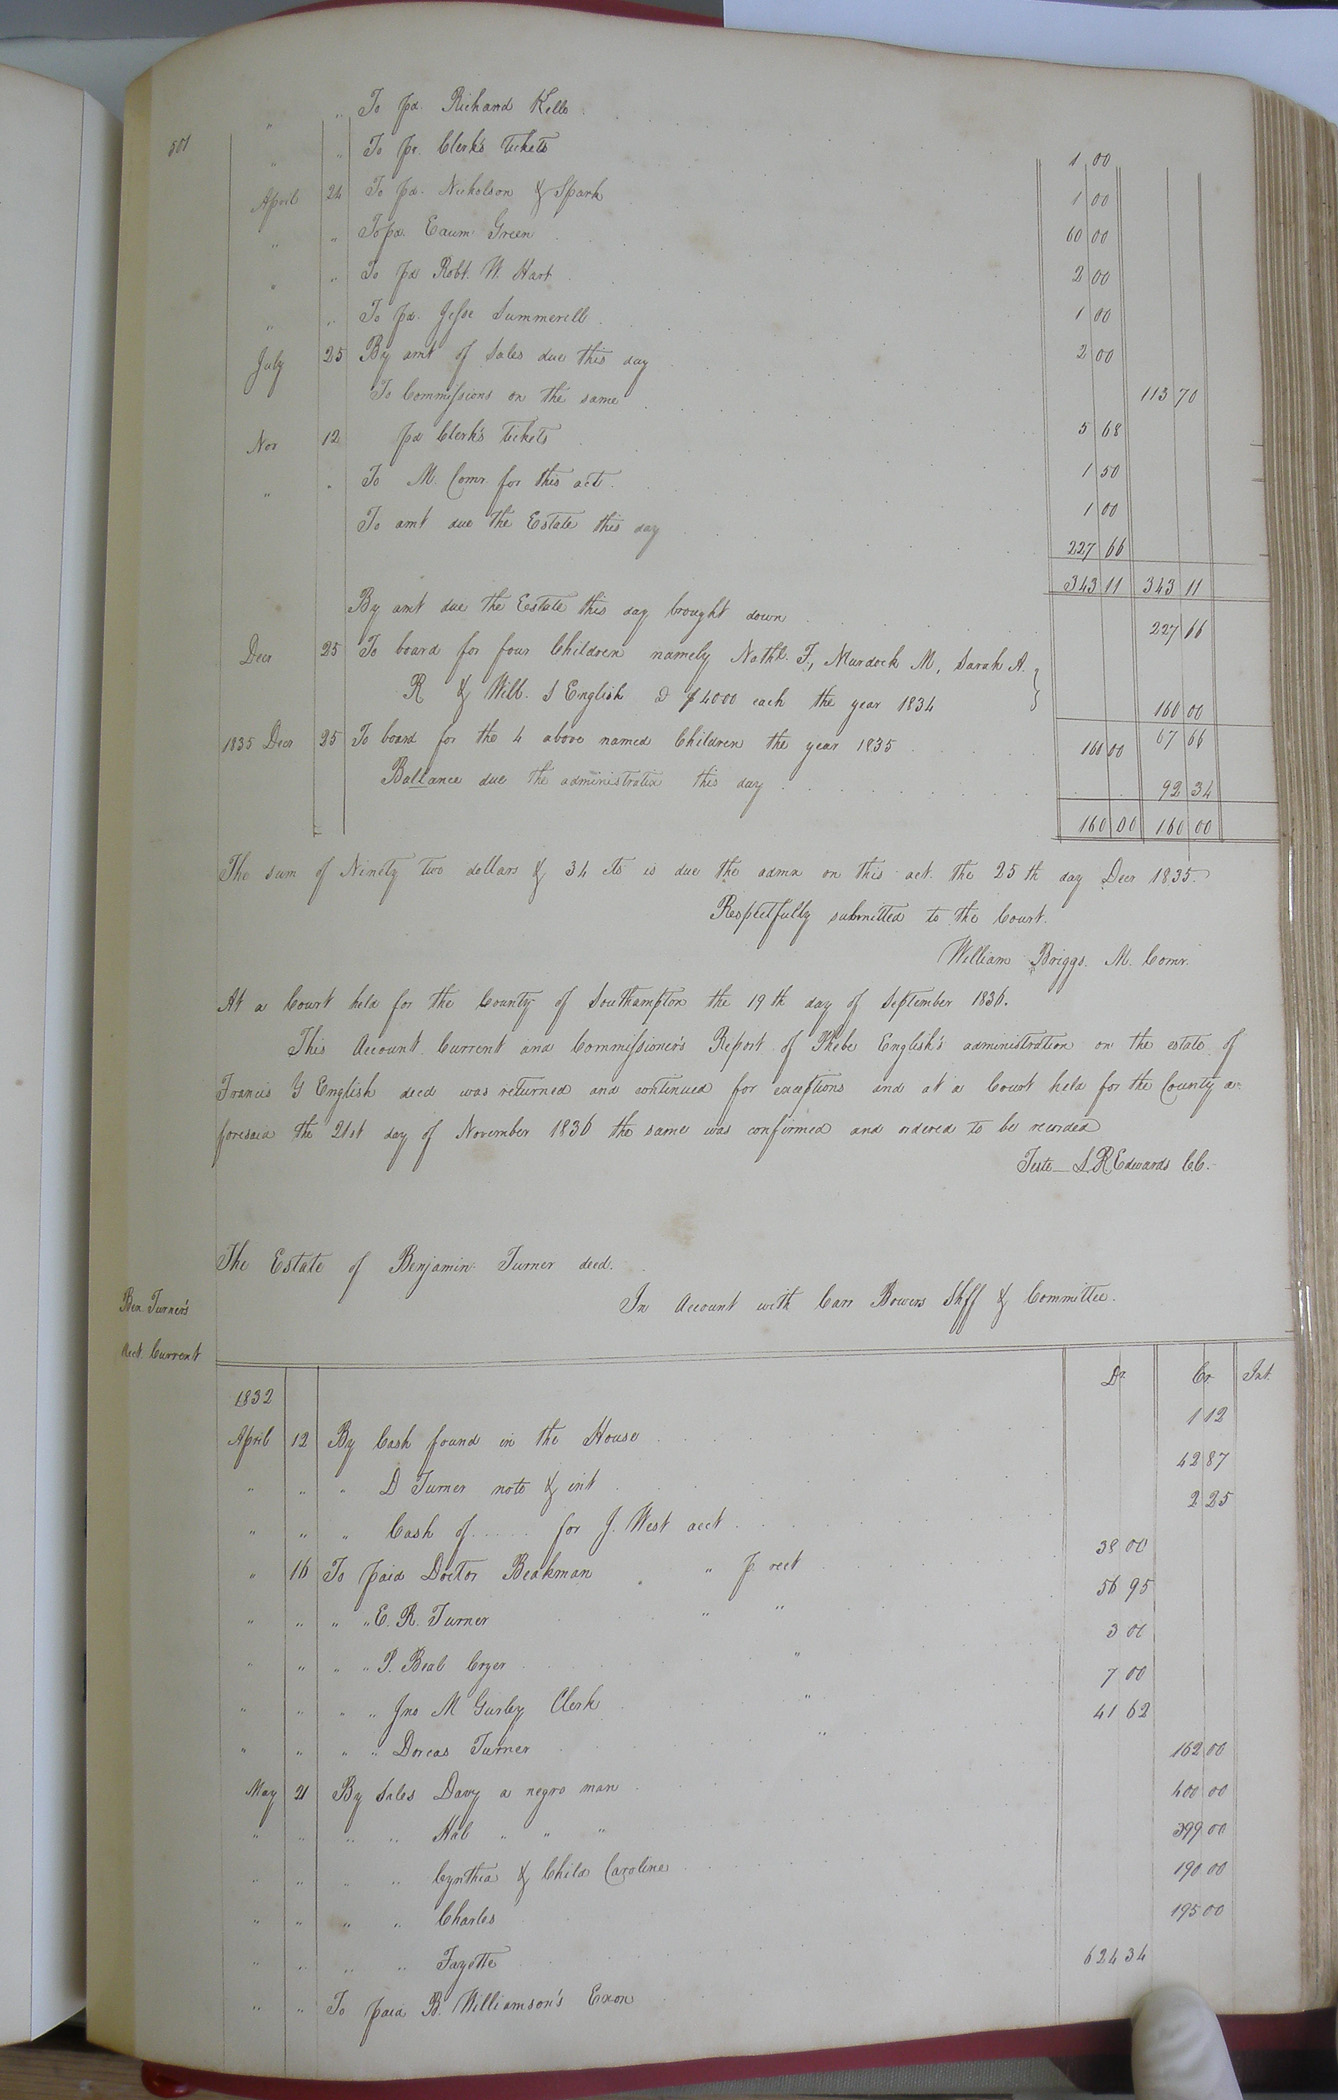 501
" " To pd. Richard Kello 1 00
" " To pr. Clerk's tickets 1 00
April 24 To pd. Nicholson & Spark 60 00
" " To pd. Exum Green 2 00
" " To pd Robt. W. Hart 1 00
" " To pd. Jesse Summerell 2 00
July 25 By amt of Sales due this day 113 70
To Commissions on the same 5 68
Nor 12 pd Clerk's tickets 1 50
" " To M. Comr. for this act. 1 00
To amt due the Estate this day 227 66
343 11 343 11
By amt due the Estate this day brought down 227 66
Decr 25 To board for four Children namely Nathl. T, Murdock M, Sarah A.
R & Will. S English @ $4000 each the year 1834 160 00
67 66
1835 Decr 25 To board for the 4 above named Children the year 1835 160 00
Ballance due the administratix this day 92 34
160 00 160 00
The sum of Ninety two dollars & 34 cts is due the admx on this act. the 25th day Decr 1835.
Respectfully submitted to the Court.
William Briggs. M. Comr.
At a Court held for the County of Southampton the 19th day of September 1836.
This Account Current and Commissioner's Report of Phebe English's administration on the estate of
Francis Y English decd was returned and continued for exceptions and at a Court held for the County a-
foresaid the 21st day of November 1836 the same was confirmed and ordered to be recorded
Teste L. R Edwards C.C.
The Estate of Benjamin Turner decd.
Ben Turner's
In Account with Carr Bowers Shff & Committee.
Acct. Current
Dr Cr Int.
1832
April 12 By Cash found in the House 1 12
" " " D Turner note & int 42 87
" " " Cash of ..... for J. West acct 2 25
" 16 To paid Doctor Beakman " p rect 38 00
" " " " E. R. Turner " " 56 95
" " " " P. Beal Cryer " 3 00
" " " " Jno M Gurley Clerk " 7 00
" " " " Dorcas Turner " 41 62
May 21 By Sales Davy a negro man 162 00
" " " " Hal " " " 400 00
" " " " Cynthia & Child Caroline 399 00
" " " " Charles 190 00
" " " " Fayette 195 00
" " To paid B. Williamson's Exon 624 34